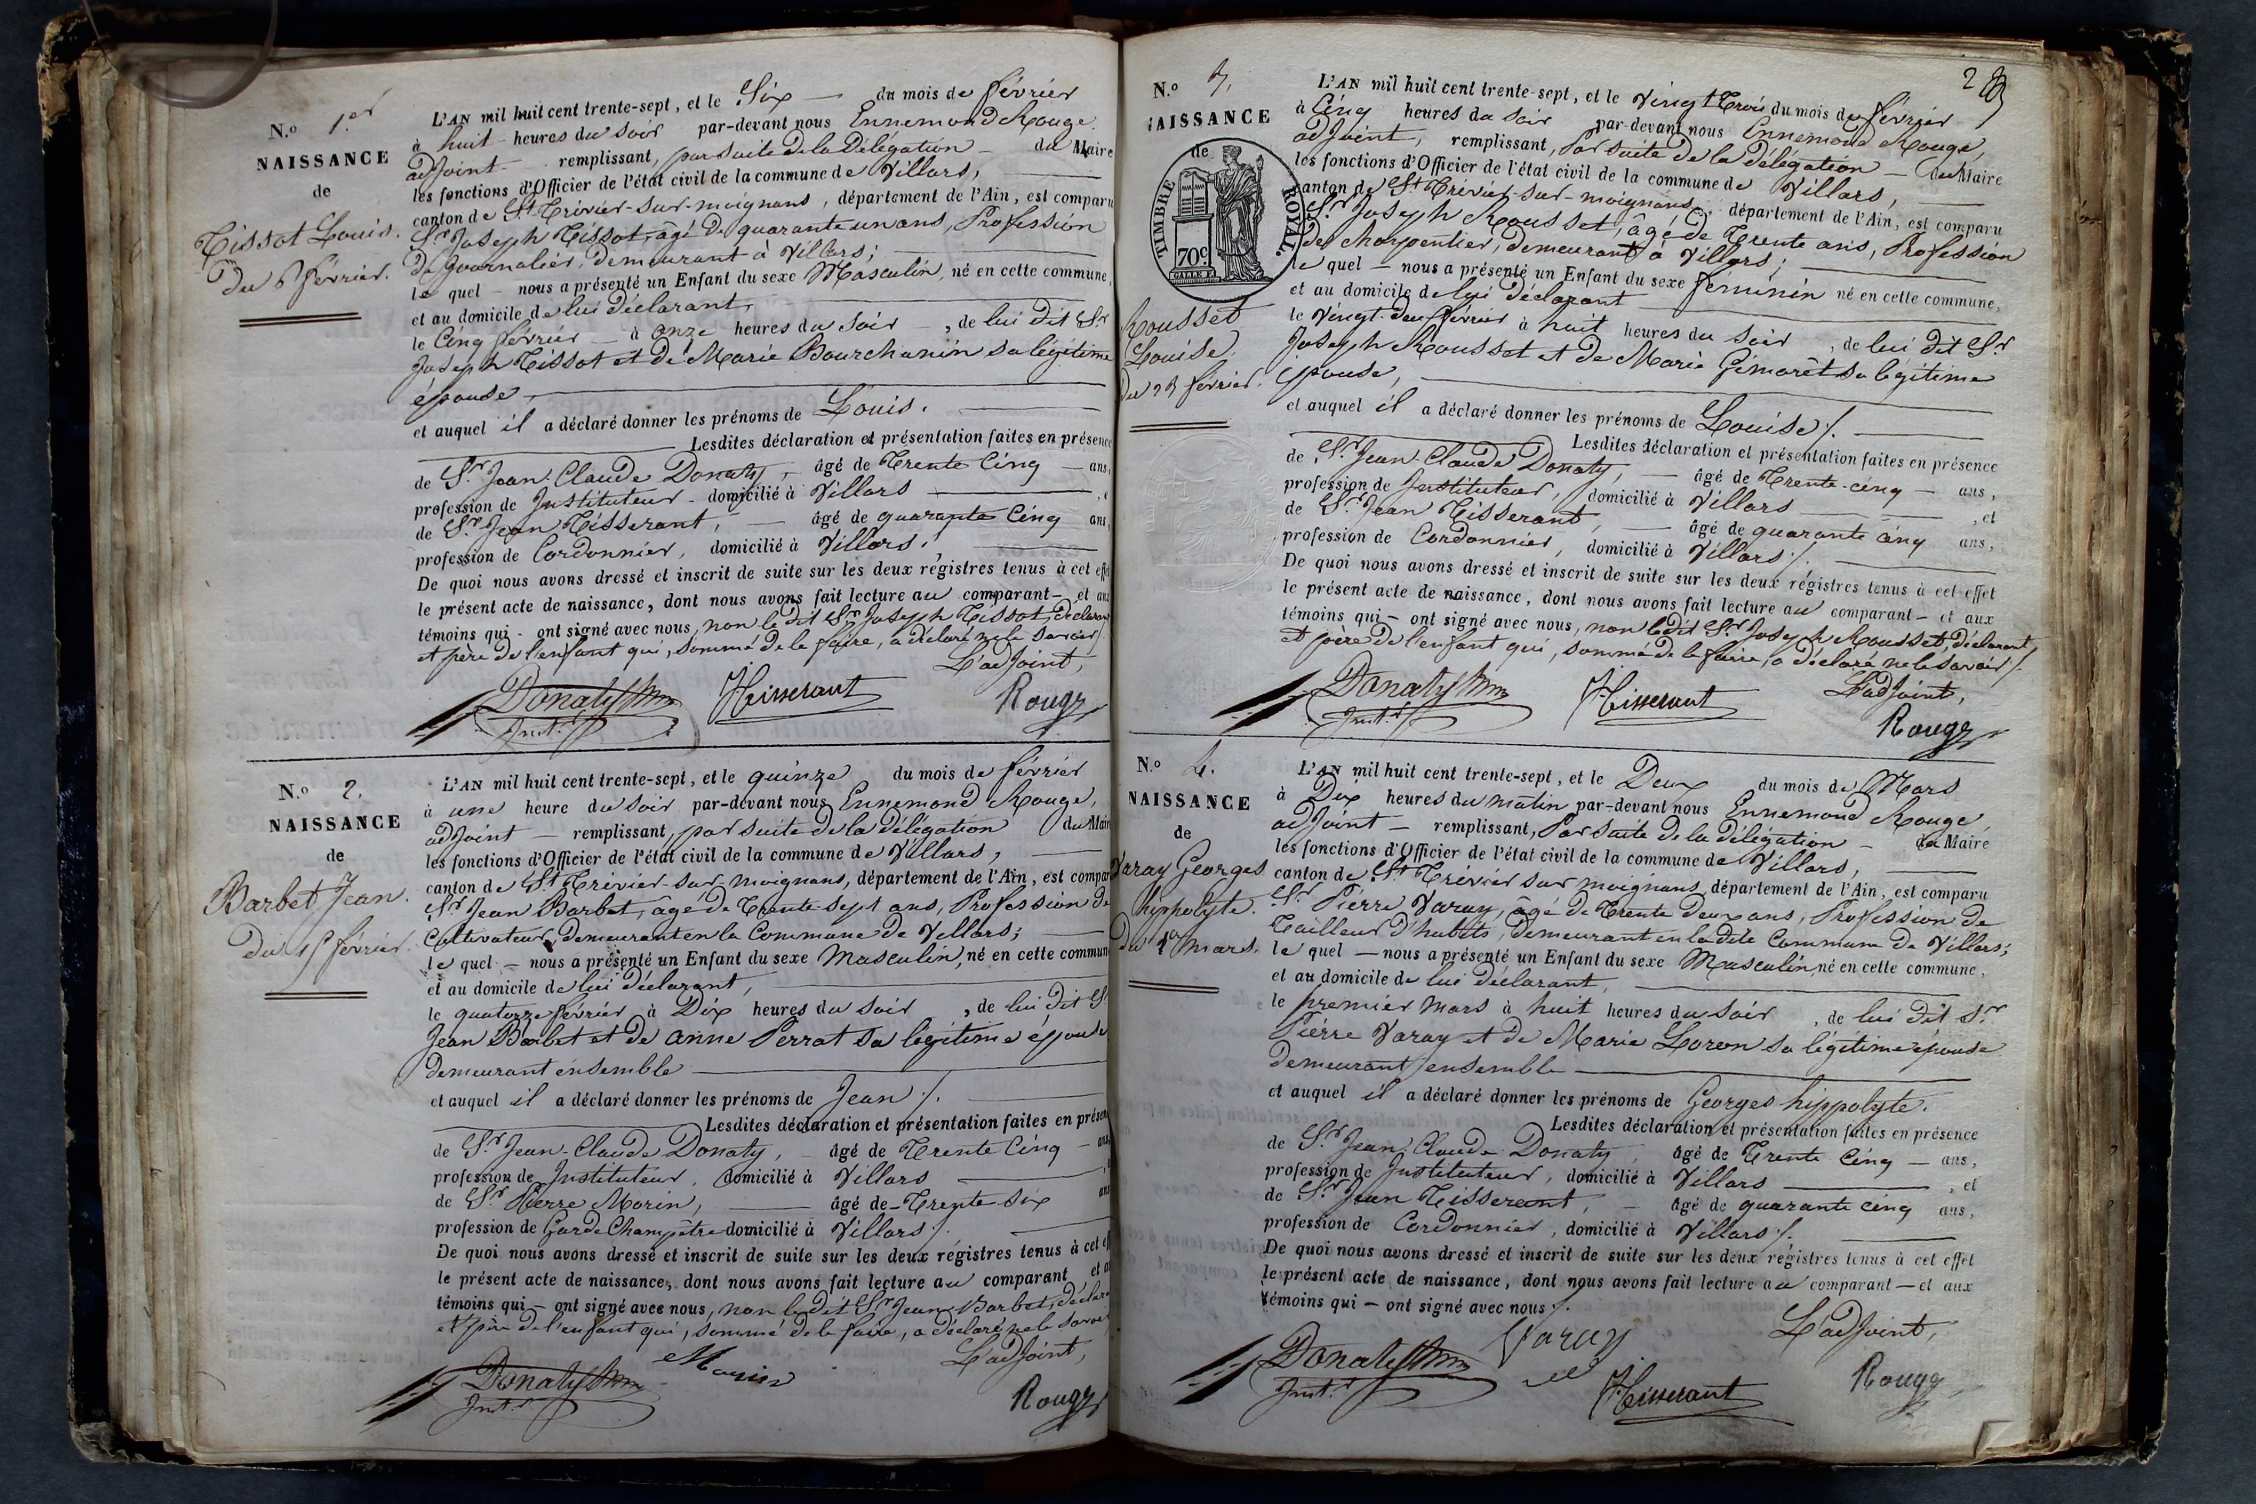 N.º 1.er
NAISSANCE
de
Tissot Louis.
du 6 février.
L'AN mil huit cent trente-sept, et le Six — du mois de février
à huit heures du soir par-devant nous Ennemond Rouge
adjoint remplissant, par suite de la Délégation — du Maire
les fonctions d'Officier de l'état civil de la commune de Villars,
canton de St Trivier-sur-moignans, département de l'Ain, est comparu
Sr. Joseph Tissot, âgé de quarante un ans, Profession
de Journalier, demeurant à Villars;
le quel nous a présenté un Enfant du sexe Masculin, né en cette commune,
et au domicile de lui déclarant,
le Cinq février — à onze heures du soir —, de lui dit Sr
Joseph Tissot et de Marie Bourchanin sa légitime
épouse —
et auquel il a déclaré donner les prénoms de Louis.
Lesdites déclaration et présentation faites en présence
de Sr. Jean-Claude Donaty, — âgé de Trente Cinq — ans,
profession de Instituteur - domicilié à Villars
de Sr. Jean Tisserant, — âgé de quarante Cinq ans,
profession de Cordonnier, domicilié à Villars.
De quoi nous avons dressé et inscrit de suite sur les deux régistres tenus à cet effet
le présent acte de naissance, dont nous avons fait lecture au comparant — et aux
témoins qui - ont signé avec nous, non le dit Sr. Joseph Tissot, Déclarant
et père de l'enfant qui, sommé de le faire, a déclaré ne le savoir
L'adjoint,
Donaty
Inst.r
JTisserant
Rouge
N.º 2.
NAISSANCE
de
Barbet Jean.
du 15 février
L'AN mil huit cent trente-sept, et le quinze du mois de février
à une heure du soir par-devant nous Ennemond Rouge,
adjoint — remplissant, par suite de la délégation du Maire
les fonctions d'Officier de l'état civil de la commune de Villars,
canton de St Trivier-sur-moignans, département de l'Ain, est comparu
Sr. Jean Barbet, âgé de Trente sept ans, Profession de
Cultivateur, demeurant en la Commune de Villars;
le quel — nous a présenté un Enfant du sexe Masculin, né en cette commune
et au domicile de lui déclarant,
le quatorze février à Dix heures du soir , de lui dit Sr
Jean Barbet et de anne Perrat sa légitime épouse
demeurant ensemble
et auquel il a déclaré donner les prénoms de Jean /.
Lesdites déclaration et présentation faites en présence
de Sr. Jean-Claude Donaty, — âgé de Trente Cinq — ans,
profession de Instituteur, domicilié à Villars
de Sr. Pierre Morin, — âgé de Trente six ans
profession de Garde Champêtre domicilié à Villars /.
De quoi nous avons dressé et inscrit de suite sur les deux régistres tenus à cet eff
le présent acte de naissance, dont nous avons fait lecture au comparant et a
témoins qui — ont signé avec nous, non le dit Sr. Jean Barbet, déclar
et père de l'enfant qui, sommé de le faire, a déclaré ne le savoir
L'adjoint,
Donaty
Inst.r
Morin
Rouge
N.º 3.
NAISSANCE
de
TIMBRE ROYAL.
70c.
Rousset
Louise
du 23 février.
L'AN mil huit cent trente-sept, et le vingt Trois du mois de février
à Cinq heures du soir par-devant nous Ennemond Rouge,
adjoint, remplissant, Par suite de la délégation — du Maire
les fonctions d'Officier de l'état civil de la commune de Villars,
canton de St Trivier-sur-moignans, département de l'Ain, est comparu
Sr. Joseph Rousset, âgé de Trente ans, Profession
de charpentier, demeurant à Villars;
le quel — nous a présenté un Enfant du sexe feminin né en cette commune,
et au domicile de lui déclarant
le vingt-deux février à huit heures du soir , de lui dit Sr
Joseph Rousset et de Marie Gémarêt sa légitime
épouse,
et auquel il a déclaré donner les prénoms de Louise /.
Lesdites déclaration et présentation faites en présence
de Sr. Jean-Claude Donaty, — âgé de Trente-cinq — ans,
profession de Instituteur, domicilié à Villars
de Sr. Jean Tisserant, — , et
âgé de quarante cinq ans,
profession de Cordonnier, domicilié à Villars /.
De quoi nous avons dressé et inscrit de suite sur les deux régistres tenus à cet effet
le présent acte de naissance, dont nous avons fait lecture au comparant — et aux
témoins qui — ont signé avec nous, non ledit Sr. Joseph Rousset, déclarant
et père de l'enfant qui, sommé de le faire, a déclaré ne le savoir /.
L'adjoint,
Donaty
Inst.r
JTisserant
Rouge
N.º 4.
NAISSANCE
de
Varay Georges
hippolyte.
du 2 mars.
L'AN mil huit cent trente-sept, et le Deux du mois de Mars
à Dix heures du matin par-devant nous Ennemond Rouge
adjoint — remplissant, Par suite de la délégation — du Maire
les fonctions d'Officier de l'état civil de la commune de Villars,
canton de St Trivier sur moignans, département de l'Ain, est comparu
Sr. Pierre Varay, âgé de Trente deux ans, Profession de
Tailleur d'habits, demeurant en la dite Commune de Villars;
le quel — nous a présenté un Enfant du sexe Masculin, né en cette commune,
et au domicile de lui déclarant,
le premier mars à huit heures du soir , de lui dit Sr
Pierre Varay et de Marie Loron sa légitime épouse
demeurant ensemble
et auquel il a déclaré donner les prénoms de Georges hippolyte.
Lesdites déclaration et présentation faites en présence
de Sr. Jean Claude Donaty, âgé de Trente Cinq — ans,
profession de Instituteur, domicilié à Villars — , et
de Sr. Jean Tisserant, — âgé de quarante cinq ans,
profession de Cordonnier, domicilié à Villars /.
De quoi nous avons dressé et inscrit de suite sur les deux régistres tenus à cet effet
le présent acte de naissance, dont nous avons fait lecture au comparant — et aux
témoins qui — ont signé avec nous /.
L'adjoint,
Donaty
Inst.r
Varay
JTisserant
Rouge